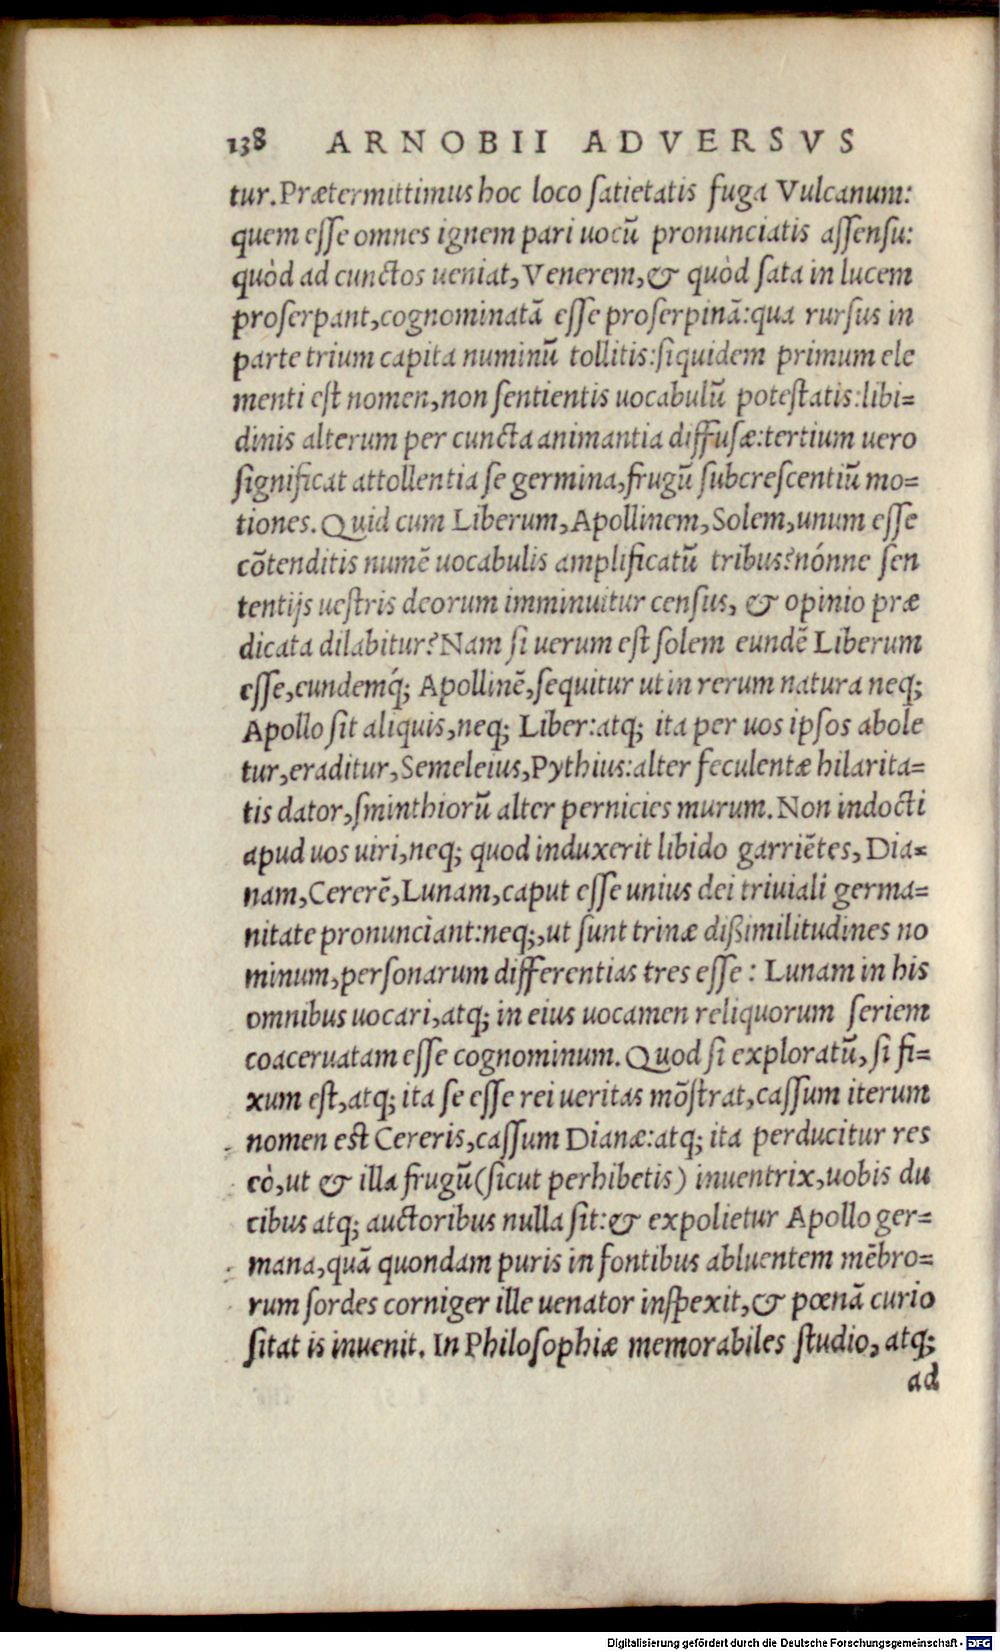 138 ARNOBII ADVERSVS
tur. Prætermittimus hoc loco ſatietatis fuga Vulcanum:
quem eſſe omnes ignem pari uocū pronunciatis aſſenſu:
quòd ad cunctos ueniat, Venerem, & quòd ſata in lucem
proſerpant, cognominatā eſſe proſerpinā: qua rurſus in
parte trium capita numinū tollitis: ſiquidem primum ele
menti eſt nomen, non ſentientis uocabulū poteſtatis: libi=
dinis alterum per cuncta animantia diffuſæ: tertium uero
ſignificat attollentia ſe germina, frugū ſubcreſcentiū mo=
tiones. Quid cum Liberum, Apollinem, Solem, unum eſſe
cōtenditis numē uocabulis amplificatū tribus? nónne ſen
tentijs ueſtris deorum imminuitur cenſus, & opinio præ
dicata dilabitur? Nam ſi uerum eſt ſolem eundē Liberum
eſſe, eundemq́; Apollinē, ſequitur ut in rerum natura neq;
Apollo ſit aliquis, neq; Liber: atq; ita per uos ipſos abole
tur, eraditur, Semeleius, Pythius: alter feculentæ hilarita=
tis dator, ſminthiorū alter pernicies murum. Non indocti
apud uos uiri, neq; quod induxerit libido garriētes, Dia=
nam, Cererē, Lunam, caput eſſe unius dei triuiali germa=
nitate pronunciànt: neq;, ut ſunt trinæ dißimilitudines no
minum, perſonarum differentias tres eſſe: Lunam in his
omnibus uocari, atq; in eius uocamen reliquorum ſeriem
coaceruatam eſſe cognominum. Quod ſi exploratū, ſi fi=
xum eſt, atq; ita ſe eſſe rei ueritas mōſtrat, caſſum iterum
nomen est Cereris, caſſum Dianæ: atq; ita perducitur res
cò, ut & illa frugū (ſicut perhibetis) inuentrix, uobis du
cibus atq; auctoribus nulla ſit: & expolietur Apollo ger=
mana, quā quondam puris in fontibus abluentem mēbro=
rum ſordes corniger ille uenator inſpexit, & pœnā curio
ſitat is inuenit. In Philoſophiæ memorabiles ſtudio, atq;
ad
Digitalisierung gefördert durch die Deutsche Forschungsgemeinschaft - DFG